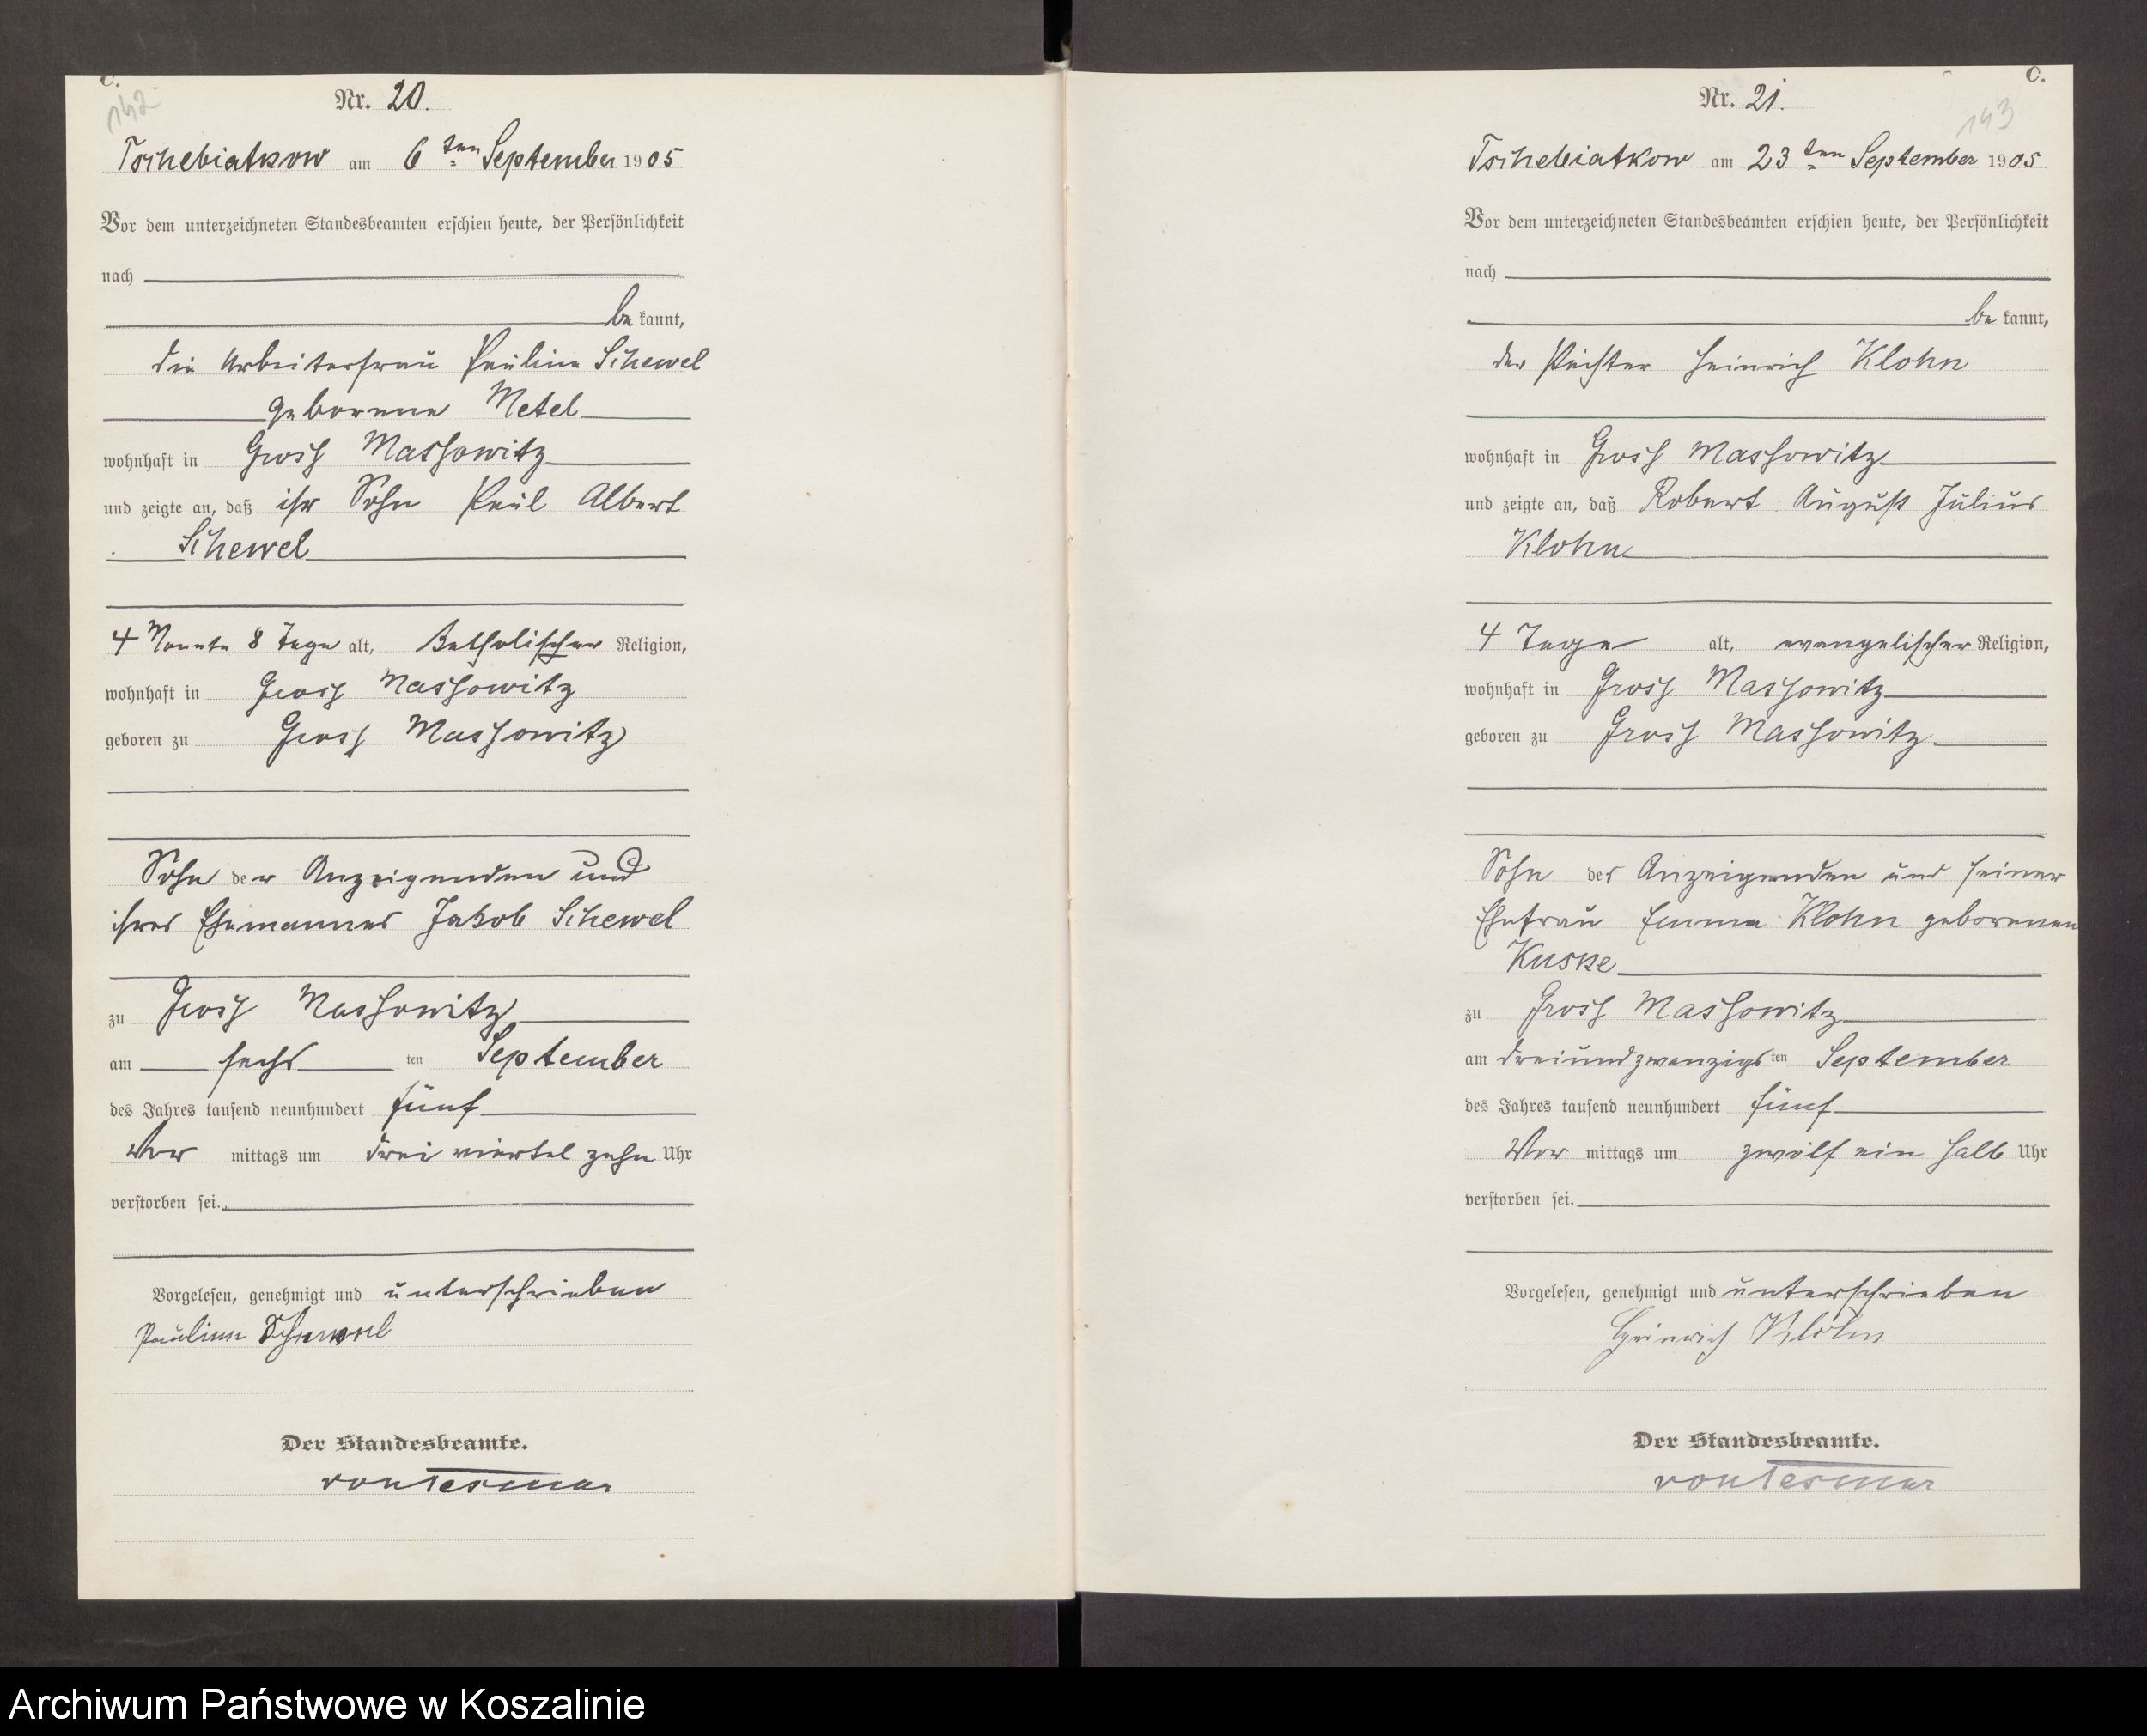 C.
142
Nr. 20.
Tschebiatkow am 6ten September 1905
Vor dem unterzeichneten Standesbeamten erschien heute, der Persönlichkeit
nach
be kannt,
die Arbeiterfrau Pauline Schewel
geborene Metel
wohnhaft in Gross Massowitz
und zeigte an, daß ihr Sohn Paul Albert
Schewel
4 Monate 8 Tage alt, katholischer Religion,
wohnhaft in Gross Massowitz
geboren zu Gross Massowitz
Sohn der Anzeigenden und
ihres Ehemannes Jakob Schewel
zu Gross Massowitz
am sechs ten September
des Jahres tausend neunhundert fünf
Vor mittags um drei viertel zehn Uhr
verstorben sei.
Vorgelesen, genehmigt und unterschrieben
Pauline Schewel
Der Standesbeamte.
von Tesmar
C.
143
Nr. 21.
Tschebiatkow am 23ten September 1905
Vor dem unterzeichneten Standesbeamten erschien heute, der Persönlichkeit
nach
be kannt,
der Pächter Heinrich Klohn
wohnhaft in Gross Massowitz
und zeigte an, daß Robert August Julius
Klohn
4 Tage alt, evangelischer Religion,
wohnhaft in Gross Massowitz
geboren zu Gross Massowitz
Sohn des Anzeigenden und seiner
Ehefrau Emma Klohn geborenen
Kuske
zu Gross Massowitz
am dreiundzwanzigs ten September
des Jahres tausend neunhundert fünf
Vor mittags um zwölf ein halb Uhr
verstorben sei.
Vorgelesen, genehmigt und unterschrieben
Heinrich Klohn
Der Standesbeamte.
von Tesmar
Archiwum Państwowe w Koszalinie